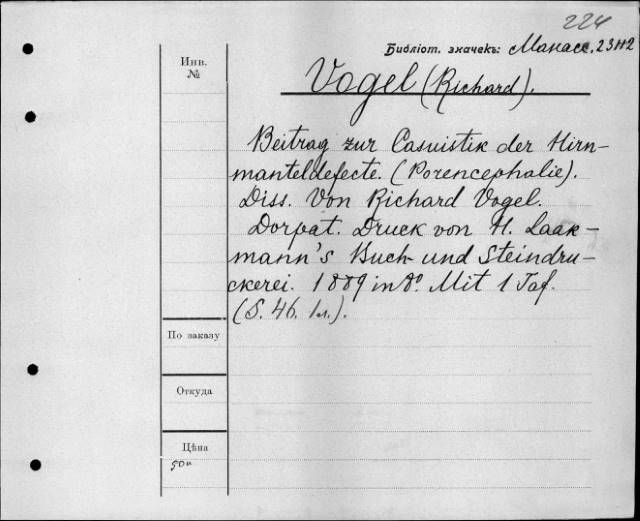 224
Библіот. значекъ: Манасс. 23112
Инв.
№
Vogel (Richard).
Beitrag zur Casuistik der Hirn-
manteldefecte. (Porencephalie).
Diss. Von Richard Vogel.
Dorpat. Druck von H. Laak-
mann's Buch- und Steindru-
ckerei. 1889 in 8º. Mit 1 Taf.
(S. 46. 1 л.).
По заказу
Откуда
Цѣна
50 к